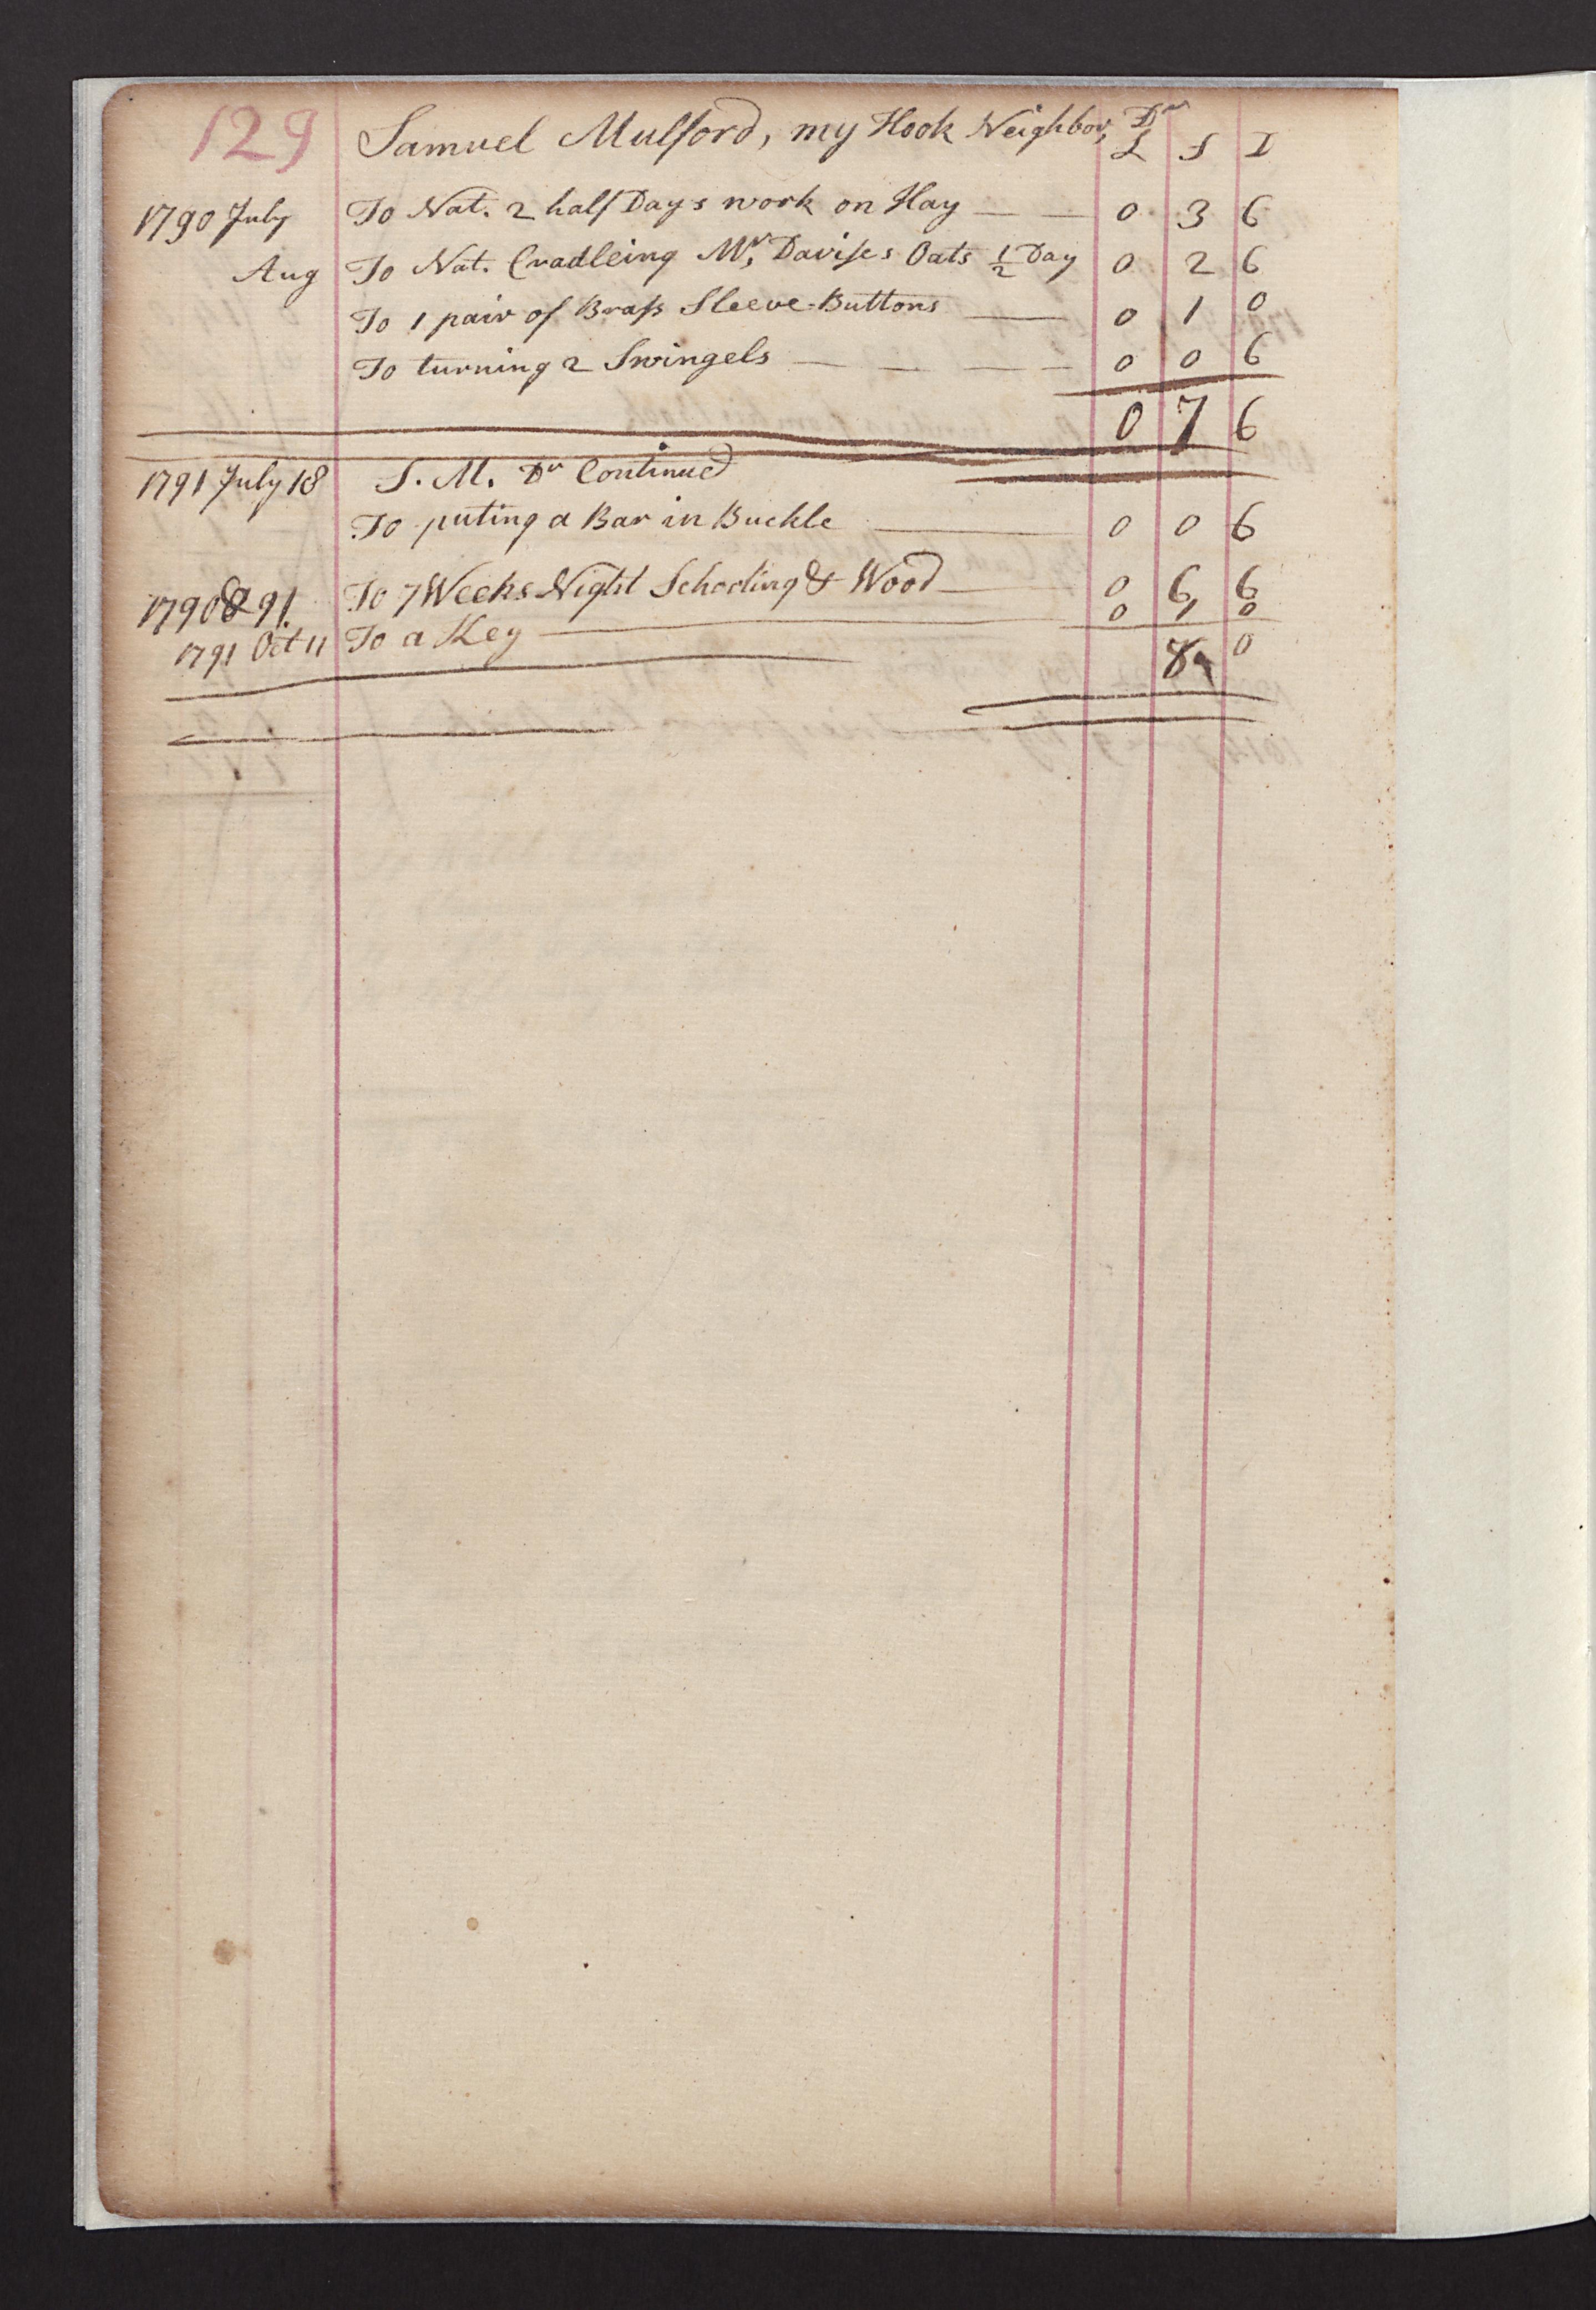 129 Samuel Mulford, my Hook Neighbor, Dr
£ S D
1790 July To Nat. 2 half Days work on Hay — — 0 3 6
Aug To Nat. Cradleing Mr, Daviſes Oats 1/2 Day 0 2 6
To 1 pair of Braſs Sleeve-Buttons — 0 1 0
To turning 2 Swingels — — — — 0 0 6
0 7 6
1791 July 18 S. M. Dr Continued
To puting a Bar in Buckle — 0 0 6
1790 & 91. To 7 Weeks Night Schooling & Wood — 0 6 6
1791 Oct 11 To a Key — 0 1 0
8 0